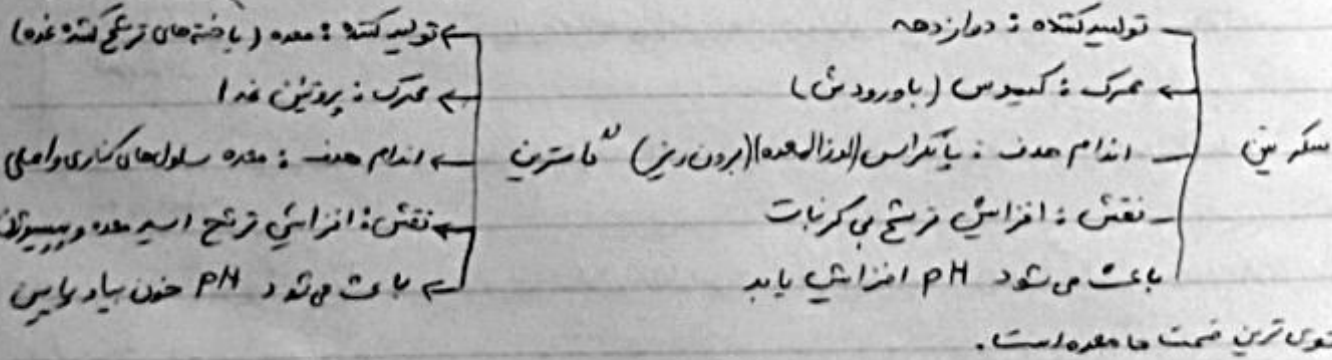 سکرتین
تولیدکننده : دوازدهه
محرک : کیموس (با ورودش)
اندام هدف : پانکراس (لوزالمعده) (برون ریز)
نقش : افزایش ترشح بی کربنات
باعث می شود pH افزایش یابد
گاسترین
تولیدکننده : معده (یاخته‌های ترشح کننده غده)
محرک : پروتئین غذا
اندام هدف : معده سلول‌های کناری و اصلی
نقش : افزایش ترشح اسید معده و
باعث می شود pH خون بیاد پایین
ترین قسمت ما معده است.